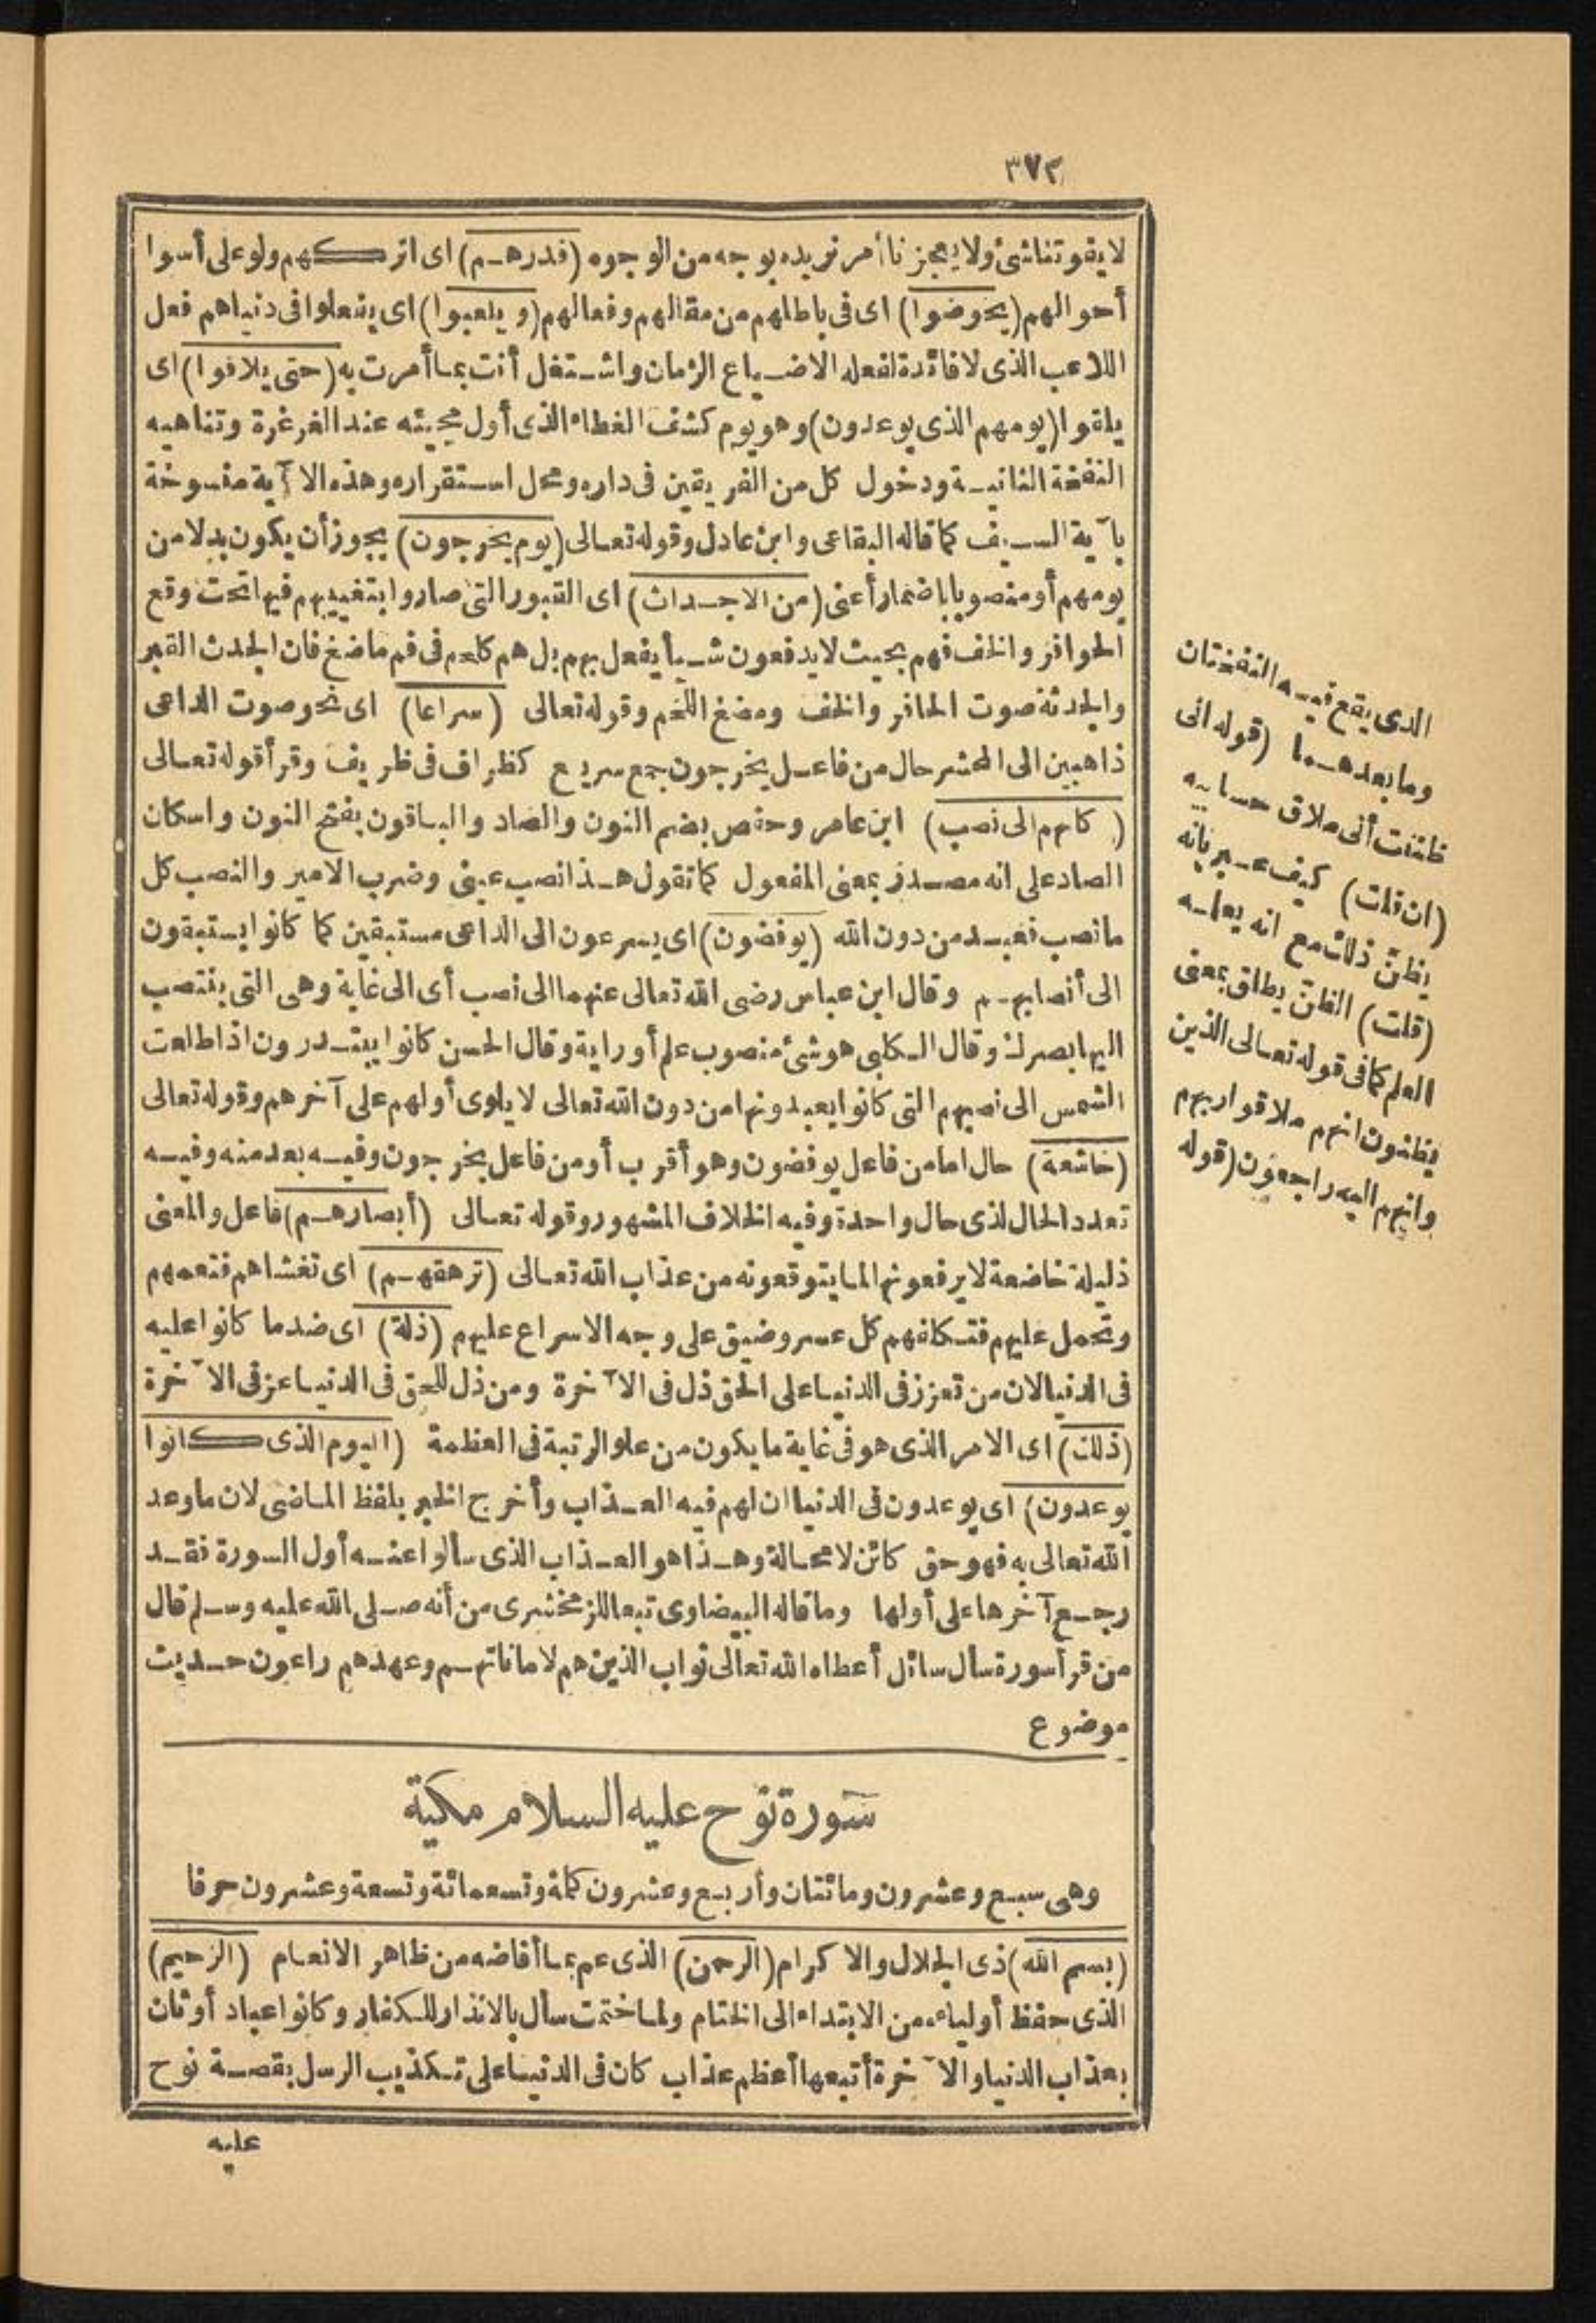 ٣٧٢
لا يفوتنا شئ ولا يعجزنا أمر نريده بوجه من الوجوه (فذرهم) اى اتركهم ولو على أسوا
أحوالهم (يخوضوا) اى فى باطلهم من مقالهم وفعالهم (و يلعبوا) اى يفعلوا فى دنياهم فعل
اللاعب الذى لا فائدة لفعله الا ضياع الزمان واشتغل أنت بما أمرت به (حتى يلاقوا) اى
يلقوا (يومهم الذى يوعدون) وهو يوم كشف الغطاء الذى أول مجيئه عند الغرغرة وتناهيه
النفخة الثانية ودخول كل من الفريقين فى داره ومحل استقراره وهذه الآية منسوخة
بآية السيف كما قاله البقاعى وابن عادل وقوله تعالى (يوم يخرجون) يجوز أن يكون بدلا من
يومهم أو منصوبا باضمار أعنى (من الاجداث) اى القبور التى صاروا بتغييبهم فيها تحت وقع
الحوافر والخف فهم بحيث لا يدفعون شيأ يفعل بهم بل هم كلهم فى فم ماضغ فان الجدث القبر
والجدثة صوت الحافر والخف ومضغ اللحم وقوله تعالى (سراعا) اى نحو صوت الداعى
ذاهبين الى المحشر حال من فاعل يخرجون جمع سريع كظراف فى ظريف وقرأ قوله تعالى
(كأنهم الى نصب) ابن عامر وحفص بضم النون والصاد والباقون بفتح النون واسكان
الصاد على انه مصدر بمعنى المفعول كما تقول هذا نصب عينى وضرب الامير والنصب كل
ما نصب فعبد من دون الله (يوفضون) اى يسرعون الى الداعى مستبقين كما كانوا يستبقون
الى أنصابهم وقال ابن عباس رضى الله تعالى عنهما الى نصب أى الى غاية وهى التى ينتصب
اليها بصرك وقال الكلبى هو شئ منصوب علم أو راية وقال الحسن كانوا يبتدرون اذا طلعت
الشمس الى نصبهم التى كانوا يعبدونها من دون الله تعالى لا يلوى أولهم على آخرهم وقوله تعالى
(خاشعة) حال اما من فاعل يوفضون وهو أقرب أو من فاعل يخرجون وفيه بعد منه وفيه
تعدد الحال لذى حال واحدة وفيه الخلاف المشهور وقوله تعالى (أبصارهم) فاعل والمعنى
ذليلة خاضعة لا يرفعونها لما يتوقعونه من عذاب الله تعالى (ترهقهم) اى تغشاهم فتعمهم
وتحمل عليهم فتكلفهم كل عسر وضيق على وجه الاسراع عليهم (ذلة) اى ضد ما كانوا عليه
فى الدنيا لان من تعزز فى الدنيا على الحق ذل فى الآخرة ومن ذل للحق فى الدنيا عز فى الآخرة
(ذلك) اى الامر الذى هو فى غاية ما يكون من علو الرتبة فى العظمة (اليوم الذى كانوا
يوعدون) اى يوعدون فى الدنيا ان لهم فيه العذاب وأخرج الخبر بلفظ الماضى لان ما وعد
الله تعالى به فهو حق كائن لا محالة وهذا هو العذاب الذى سألوا عنه أول السورة فقد
رجع آخرها على أولها وما قاله البيضاوى تبعا للزمخشرى من أنه صلى الله عليه وسلم قال
من قرأ سورة سأل سائل أعطاه الله تعالى ثواب الذين هم لاماناتهم وعهدهم راعون حديث
موضوع
سورة نوح عليه السلام مكية
وهى سبع وعشرون ومائتان وأربع وعشرون كلمة وتسعمائة وتسعة وعشرون حرفا
(بسم الله) ذى الجلال والاكرام (الرحمن) الذى عم بما أفاضه من ظاهر الانعام (الرحيم)
الذى حفظ أولياءه من الابتداء الى الختام ولما ختمت سأل بالانذار للكفار وكانوا عباد أوثان
بعذاب الدنيا والآخرة أتبعها أعظم عذاب كان فى الدنيا على تكذيب الرسل بقصة نوح
عليه
الذى يقع فيه النفختان
وما بعدهما (قوله انى
ظننت أنى ملاق حسابيه
(ان قلت) كيف عبر بانه
يظن ذلك مع انه يعلمه
(قلت) الظن يطلق بمعنى
العلم كما فى قوله تعالى الذين
يظنون انهم ملاقوا ربهم
وانهم اليه راجعون (قوله